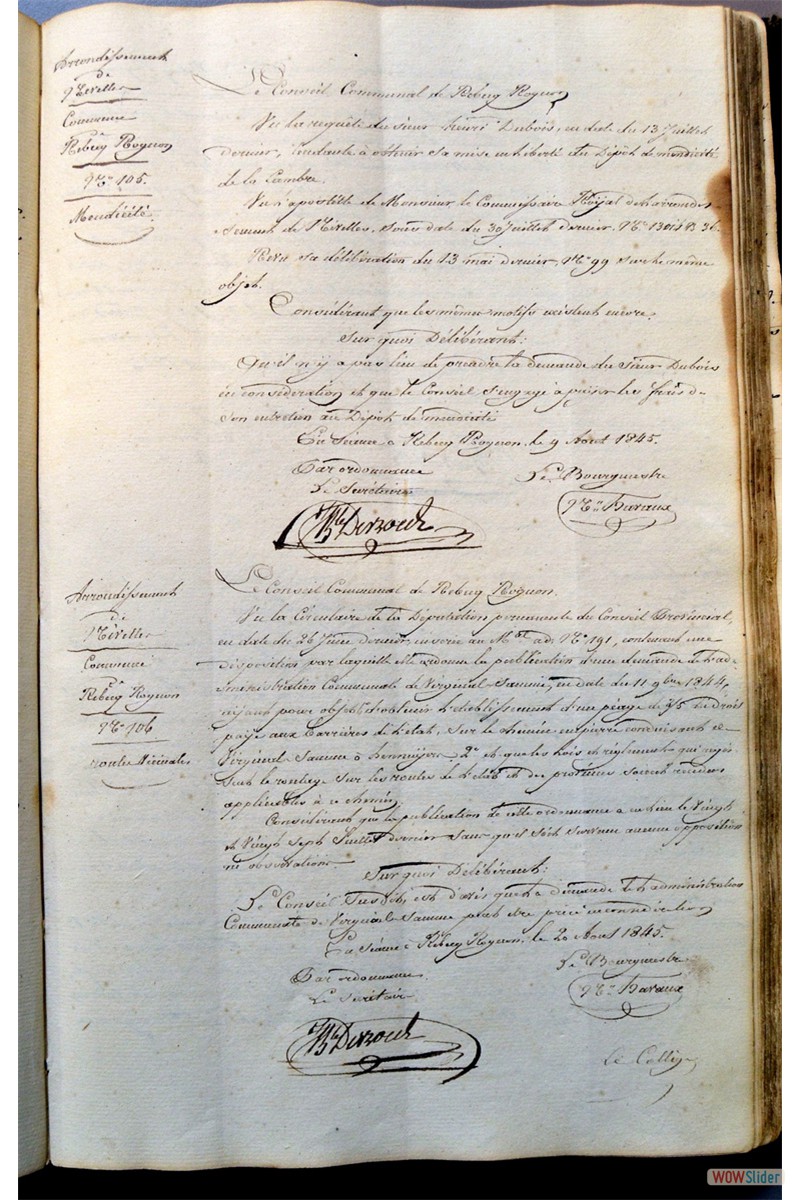 Arrondissement
de
Nivelles
Commune
de
Rebecq Rognon
N° 105.
Mendicité
Le Conseil Communal de Rebecq Rognon
Vu la requête du sieur henri Dubois, en date du 13 Juillet
dernier, tendante à obtenir sa mise en liberté du Dépôt de mendicité
de la Cambre.
Vu l'apostille de Monsieur le Commissaire Royal de l'arrondis-
sement de Nivelles, sous date du 30 Juillet dernier, N°
Revu sa délibération du 13 mai dernier, N° 99 sur le même
objet.
Considérant que les mêmes motifs existent encore.
Sur quoi Délibérant:
Qu'il n'y a pas lieu de prendre la demande du Sieur Dubois
en considération et que le Conseil s'engage à payer les frais de
son entretien au Dépôt de mendicité
En Séance à Rebecq Rognon, le 9 Aout 1845.
Par ordonnance
Le Secrétaire
Le Bourgmestre
Havaux
Derzoek
Arrondissement
de
Nivelles
Commune
de
Rebecq Rognon
N° 106
routes Vicinales
Le Conseil Communal de Rebecq Rognon.
Vu la Circulaire de la Députation permanente du Conseil Provincial,
en date du 26 Juin dernier, inserée au N° 191, contenant une
disposition par laquelle elle ordonne la publication d'une demande de l'ad-
ministration Communale de Virginal Samme, en date du 11 9bre 1844,
ayant pour objet d'obtenir l'établissement d'un péage de du droit
payé aux barrières de l'etat, sur le chemin en pierre conduisant de
Virginal Samme à hennuyères 2° et que les lois et réglements qui régis-
sent le roulage sur les routes de l'etat et des provinces soient rendus
applicables à ce chemin.
Considérant que la publication de cette ordonnance a eu lieu le Vingt
et Vingt sept Juillet dernier sans qu'il soit survenu aucune opposition
ni observations
Sur quoi Délibérant:
Le Conseil Susdit, est d'avis que la demande de l'administration
Communale de Virginal Samme peut être prise en considération
En Séance à Rebecq Rognon, le 20 Aout 1845.
Par ordonnance
Le Secrétaire
Le Bourgmestre
Havaux
Derzoek
Le Collège
WOWSlider